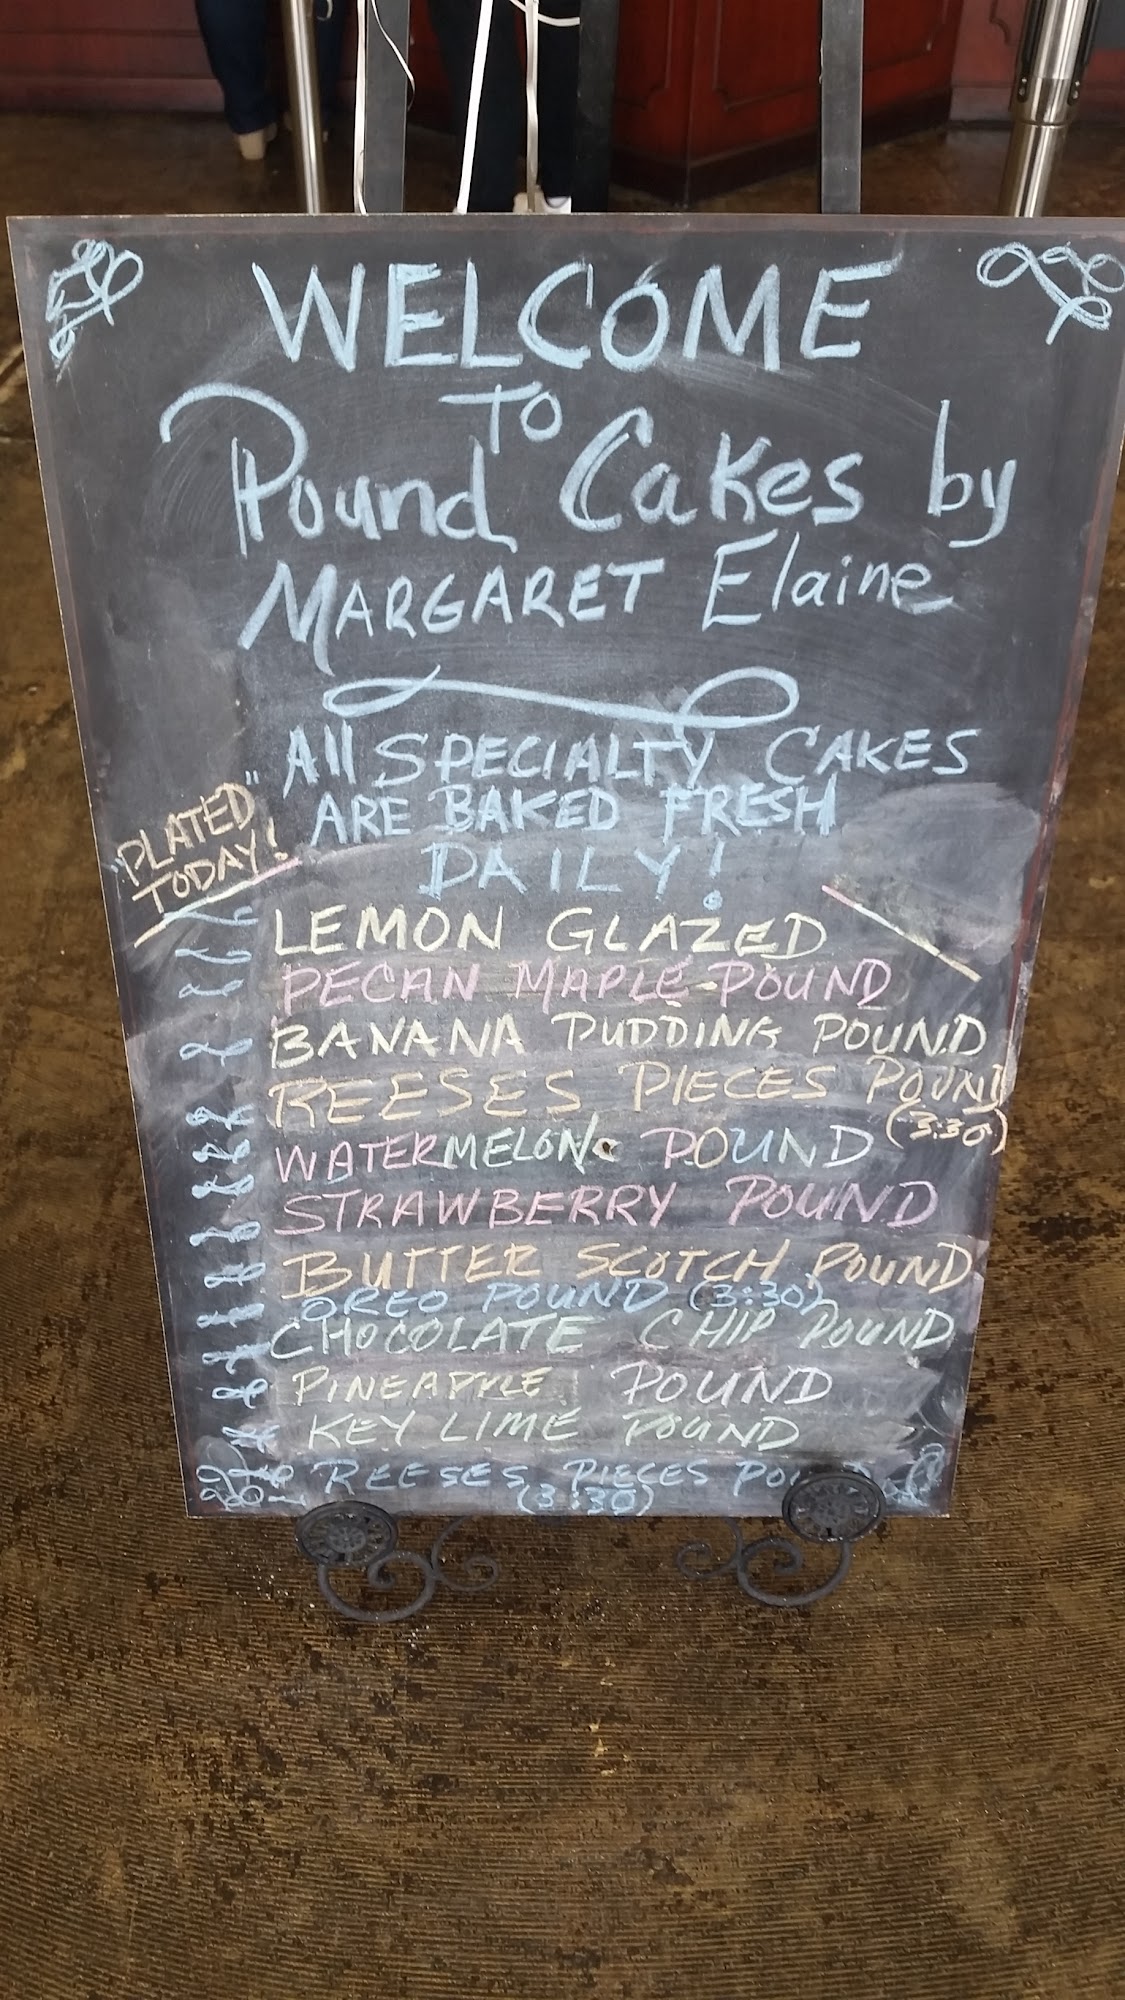 WELCOME
TO
Pound Cakes by
MARGARET Elaine
All SPECIALTY CAKES
ARE BAKED FRESH
DAILY!
"PLATED"
TODAY!
LEMON GLAZED
PECAN MAPLE POUND
BANANA PUDDING POUND
REESES PIECES POUND
(3:30)
WATERMELON POUND
STRAWBERRY POUND
BUTTER SCOTCH POUND
OREO POUND (3:30)
CHOCOLATE CHIP POUND
PINEAPPLE POUND
KEY LIME POUND
REESES PIECES
(3:30)